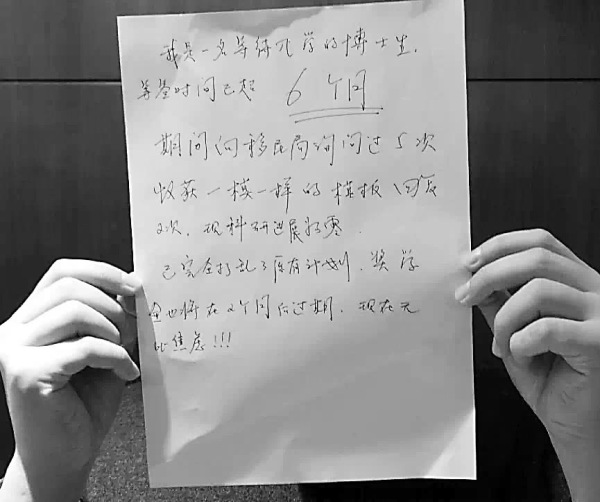 我是一名等待入学的博士生,
等签时间已超 6个月
期间向移民局询问过5次
收获一模一样的模板回复
2次. 现科研进展为零.
已完全打乱了原有计划. 奖学
金也将在2个月后过期. 现在无
比焦虑!!!